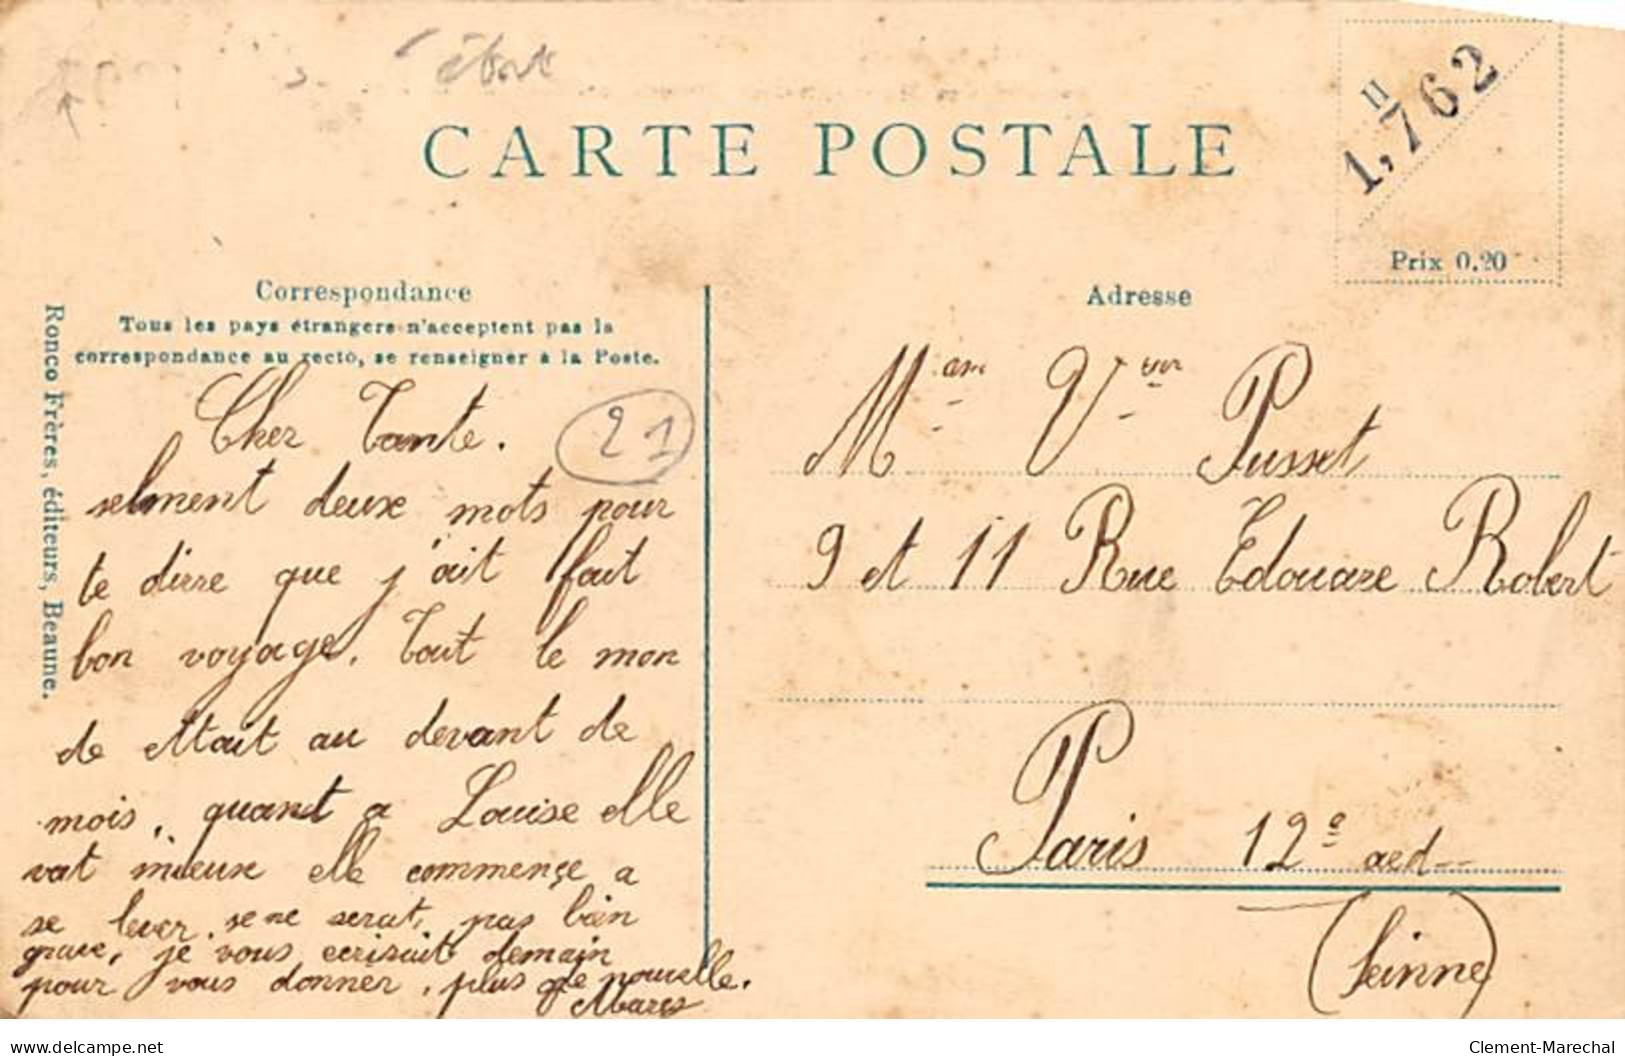 CARTE POSTALE
II
1,762
Prix 0.20
Correspondance
Tous les pays étrangers n'acceptent pas la
correspondance au recto, se renseigner à la Poste.
Adresse
Ronco Frères, éditeurs, Beaune.
21
Cher Tante.
selment deux mots pour
te dirre que j'ait fait
bon voyage. Tout le mon
de ettait au devant de
mois, quant a Louise elle
vat mieux elle commençe a
se lever. se ne serat pas bien
grave, je vous ecrisait demain
pour vous donner, plus de nouvelle.
Mam Vve Pusset
9 et 11 Rue Edouare Robert
Paris 12e
(Seinne)
delcampe.net
Clement-Marechal